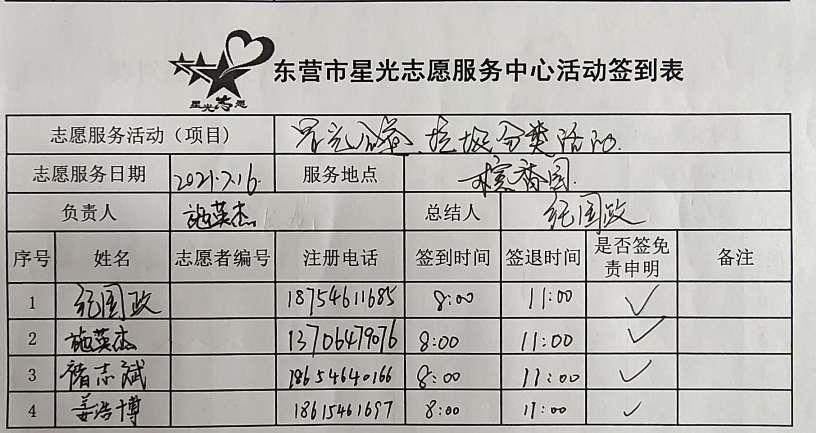 星光志愿
东营市星光志愿服务中心活动签到表
志愿服务活动（项目） 星光公益 垃圾分类活动.
志愿服务日期 2021.7.16. 服务地点 檀香园.
负责人 施英杰 总结人 纪国政
序号 姓名 志愿者编号 注册电话 签到时间 签退时间 是否签免责申明 备注
1 纪国政 18754611685 8:00 11:00 ✓
2 施英杰 13706479076 8:00 11:00 ✓
3 褚志斌 18654640166 8:00 11:00 ✓
4 姜浩博 18615461697 8:00 11:00 ✓